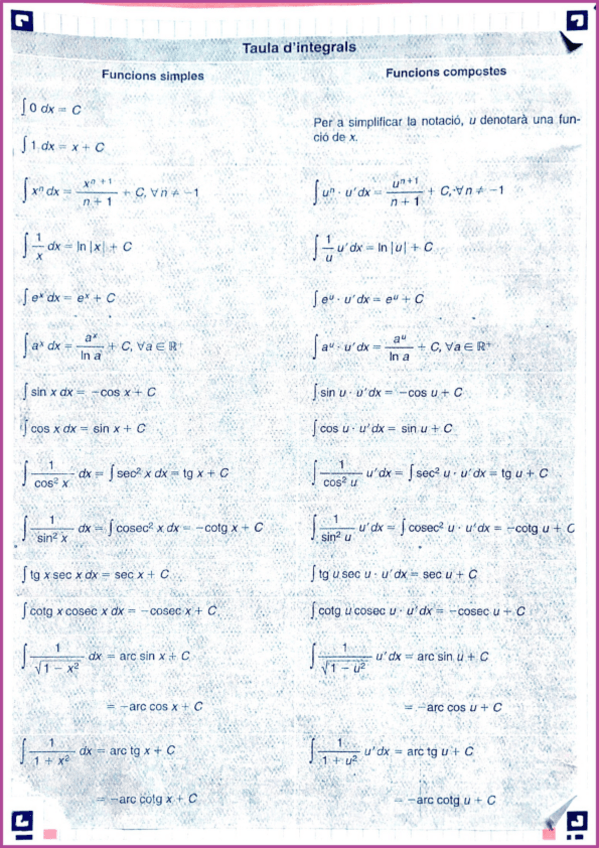 Taula d'integrals
Funcions simples
∫ 0 dx = C
∫ 1 dx = x + C
∫ xⁿ dx = xⁿ⁺¹ / (n + 1) + C, ∀ n ≠ −1
∫ 1/x dx = ln |x| + C
∫ eˣ dx = eˣ + C
∫ aˣ dx = aˣ / ln a + C, ∀ a ∈ ℝ⁺
∫ sin x dx = −cos x + C
∫ cos x dx = sin x + C
∫ 1/cos² x dx = ∫ sec² x dx = tg x + C
∫ 1/sin² x dx = ∫ cosec² x dx = −cotg x + C
∫ tg x sec x dx = sec x + C
∫ cotg x cosec x dx = −cosec x + C
∫ 1/√(1 − x²) dx = arc sin x + C
= −arc cos x + C
∫ 1/(1 + x²) dx = arc tg x + C
= −arc cotg x + C
Funcions compostes
Per a simplificar la notació, u denotarà una fun-
ció de x.
∫ uⁿ · u' dx = uⁿ⁺¹ / (n + 1) + C, ∀ n ≠ −1
∫ 1/u u' dx = ln |u| + C
∫ eᵘ · u' dx = eᵘ + C
∫ aᵘ · u' dx = aᵘ / ln a + C, ∀ a ∈ ℝ⁺
∫ sin u · u' dx = −cos u + C
∫ cos u · u' dx = sin u + C
∫ 1/cos² u u' dx = ∫ sec² u · u' dx = tg u + C
∫ 1/sin² u u' dx = ∫ cosec² u · u' dx = −cotg u + C
∫ tg u sec u · u' dx = sec u + C
∫ cotg u cosec u · u' dx = −cosec u + C
∫ 1/√(1 − u²) u' dx = arc sin u + C
= −arc cos u + C
∫ 1/(1 + u²) u' dx = arc tg u + C
= −arc cotg u + C